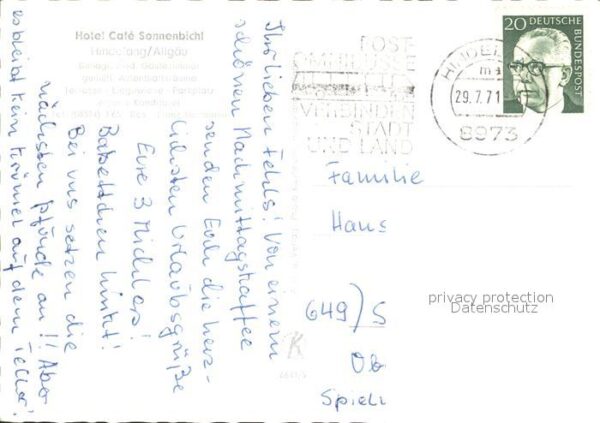 Hotel Café Sonnenbichl
Hindelang/Allgäu
Ihr lieben Fehls! Von einem
schönen Nachmittagskaffee
senden Euch die herz-
lichsten Urlaubsgrüße
Eure 3 Michlers!
Babettchen hinkt!
Bei uns setzen die
nächsten Pfunde an!! Aber
es bleibt kein Krümel auf dem Teller!
POST-
OMNIBUSSE
VERBINDEN
STADT
UND LAND
29.7.71
8973
20 DEUTSCHE
BUNDESPOST
Familie
Hans
649/S
Ob
Spiel
privacy protection
Datenschutz